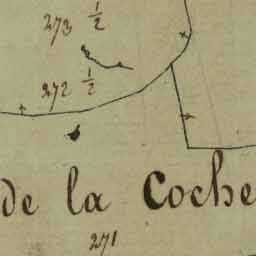 273 1/2
272 1/2
de la Coche
271